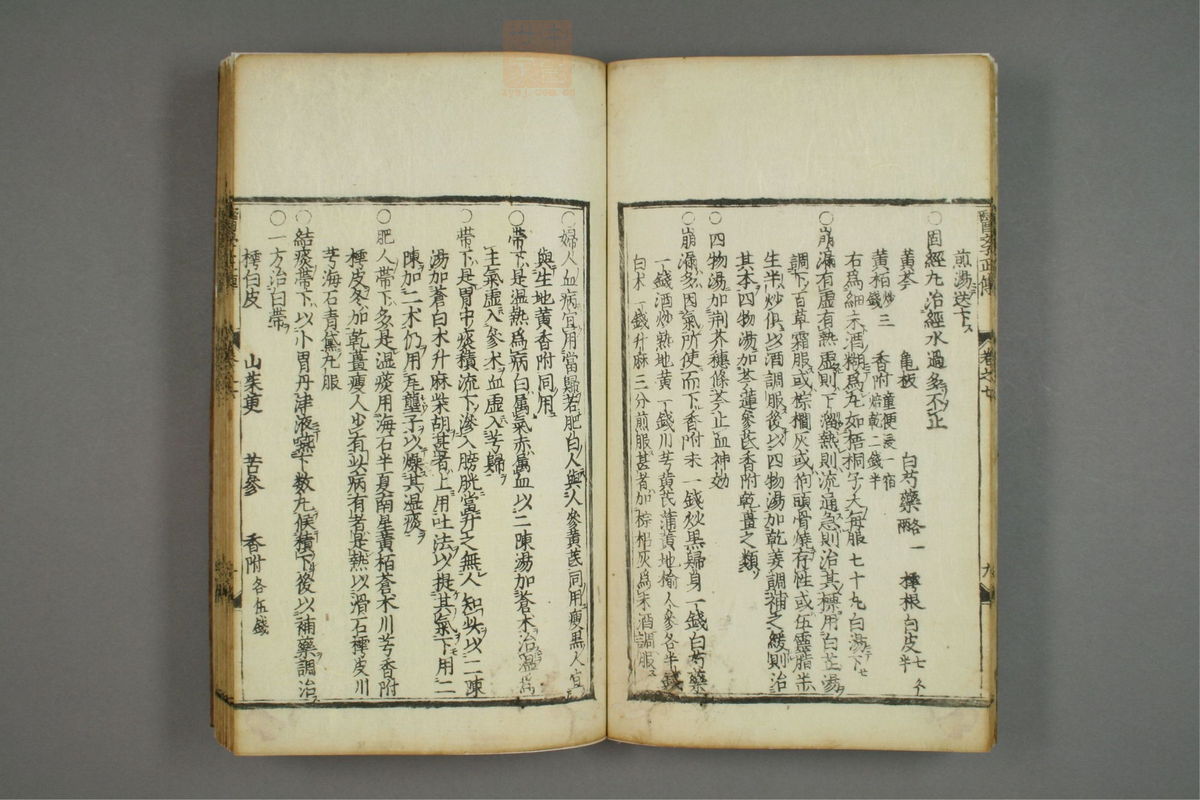 煎湯送下ス
○固經丸治經水過多不止
黄芩 亀板 白芍藥 略一 樗根白皮 七半
黄栢炒三錢 香附童便浸一宿焙乾二錢半
右爲細末酒糊爲丸如梧桐子大每服七十丸白湯下
○崩漏有虛有熱虛則下溜熱則流通急則治其標用白芷湯
調下百草霜服或棕櫚灰或狗頭骨燒存性或伍靈脂半
生半炒俱以酒調服後以四物湯加乾姜調補之緩則治
其本四物湯加芩連參芪香附乾薑之類
○四物湯加荆芥穗條芩止血神効
○崩漏多因氣所使而下香附末一錢炒黒歸身一錢白芍藥
一錢酒炒熟地黄一錢川芎黄芪蒲黄地榆人參各半錢
白朮一錢升麻三分煎服甚者加棕梠灰爲末酒調服
醫學正傳 卷之七 九
○婦人血病宜用當歸若肥白人與人參黄芪同用瘦黒人宜
與生地黄香附同用
○帶下是濕熱爲病白属氣赤属血以二陳湯加蒼朮治濕爲
主氣虛入參朮血虛入芎歸
○帶下是胃中痰積流下滲入膀胱當升之無人知此以二陳
湯加蒼白朮升麻柴胡甚者上用吐法以提其氣下用二
陳加二朮仍用瓦壟子以燥其濕痰
○肥人帶下多是濕痰用海石半夏南星黄栢蒼朮川芎香附
樗皮冬加乾薑瘦人少有此病有者是熱以滑石樗皮川
芎海石青黛丸服
○結痰帶下以小胃丹津液嚥下数丸候積下後以補藥調治
○一方治白帶
樗白皮 山茱萸 苦參 香附各伍錢